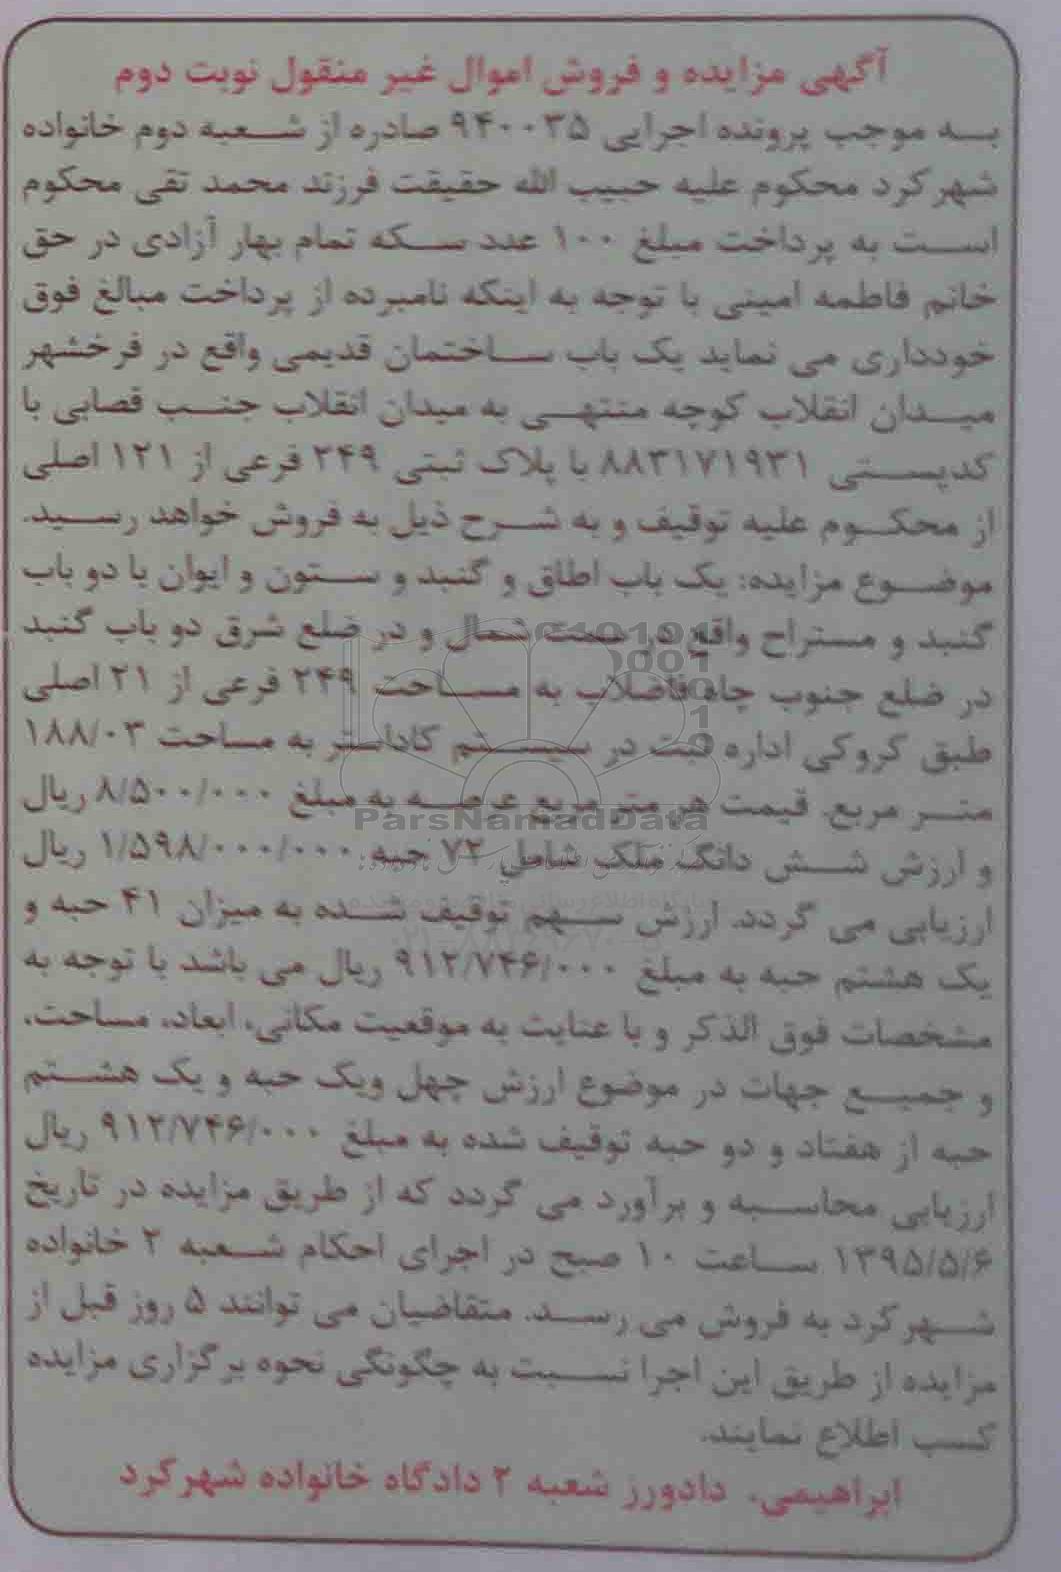 آگهی مزایده و فروش اموال غیر منقول نوبت دوم
به موجب پرونده اجرایی ۹۴۰۰۳۵ صادره از شعبه دوم خانواده
شهرکرد محکوم علیه حبیب الله حقیقت فرزند محمد تقی محکوم
است به پرداخت مبلغ ۱۰۰ عدد سکه تمام بهار آزادی در حق
خانم فاطمه امینی با توجه به اینکه نامبرده از پرداخت مبالغ فوق
خودداری می نماید یک باب ساختمان قدیمی واقع در فرخشهر
میدان انقلاب کوچه منتهی به میدان انقلاب جنب قصابی با
کدپستی ۸۸۳۱۷۱۹۳۱ با پلاک ثبتی ۲۴۹ فرعی از ۱۲۱ اصلی
از محکوم علیه توقیف و به شرح ذیل به فروش خواهد رسید.
موضوع مزایده: یک باب اطاق و گنبد و ستون و ایوان با دو باب
گنبد و مستراح واقع در سمت شمال و در ضلع شرق دو باب گنبد
در ضلع جنوب چاه فاضلاب به مساحت ۲۴۹ فرعی از ۲۱ اصلی
طبق کروکی اداره ثبت در سیستم کاداستر به مساحت ۱۸۸/۰۳
متر مربع. قیمت هر متر مربع عرصه به مبلغ ۸/۵۰۰/۰۰۰ ریال
و ارزش شش دانگ ملک شامل ۷۲ حبه ۱/۵۹۸/۰۰۰/۰۰۰ ریال
ارزیابی می گردد. ارزش سهم توقیف شده به میزان ۴۱ حبه و
یک هشتم حبه به مبلغ ۹۱۲/۷۴۶/۰۰۰ ریال می باشد با توجه به
مشخصات فوق الذکر و با عنایت به موقعیت مکانی، ابعاد، مساحت،
و جمیع جهات در موضوع ارزش چهل ویک حبه و یک هشتم
حبه از هفتاد و دو حبه توقیف شده به مبلغ ۹۱۲/۷۴۶/۰۰۰ ریال
ارزیابی محاسبه و برآورد می گردد که از طریق مزایده در تاریخ
۱۳۹۵/۵/۶ ساعت ۱۰ صبح در اجرای احکام شعبه ۲ خانواده
شهرکرد به فروش می رسد. متقاضیان می توانند ۵ روز قبل از
مزایده از طریق این اجرا نسبت به چگونگی نحوه برگزاری مزایده
کسب اطلاع نمایند.
ابراهیمی. دادورز شعبه ۲ دادگاه خانواده شهرکرد
ParsNamadData